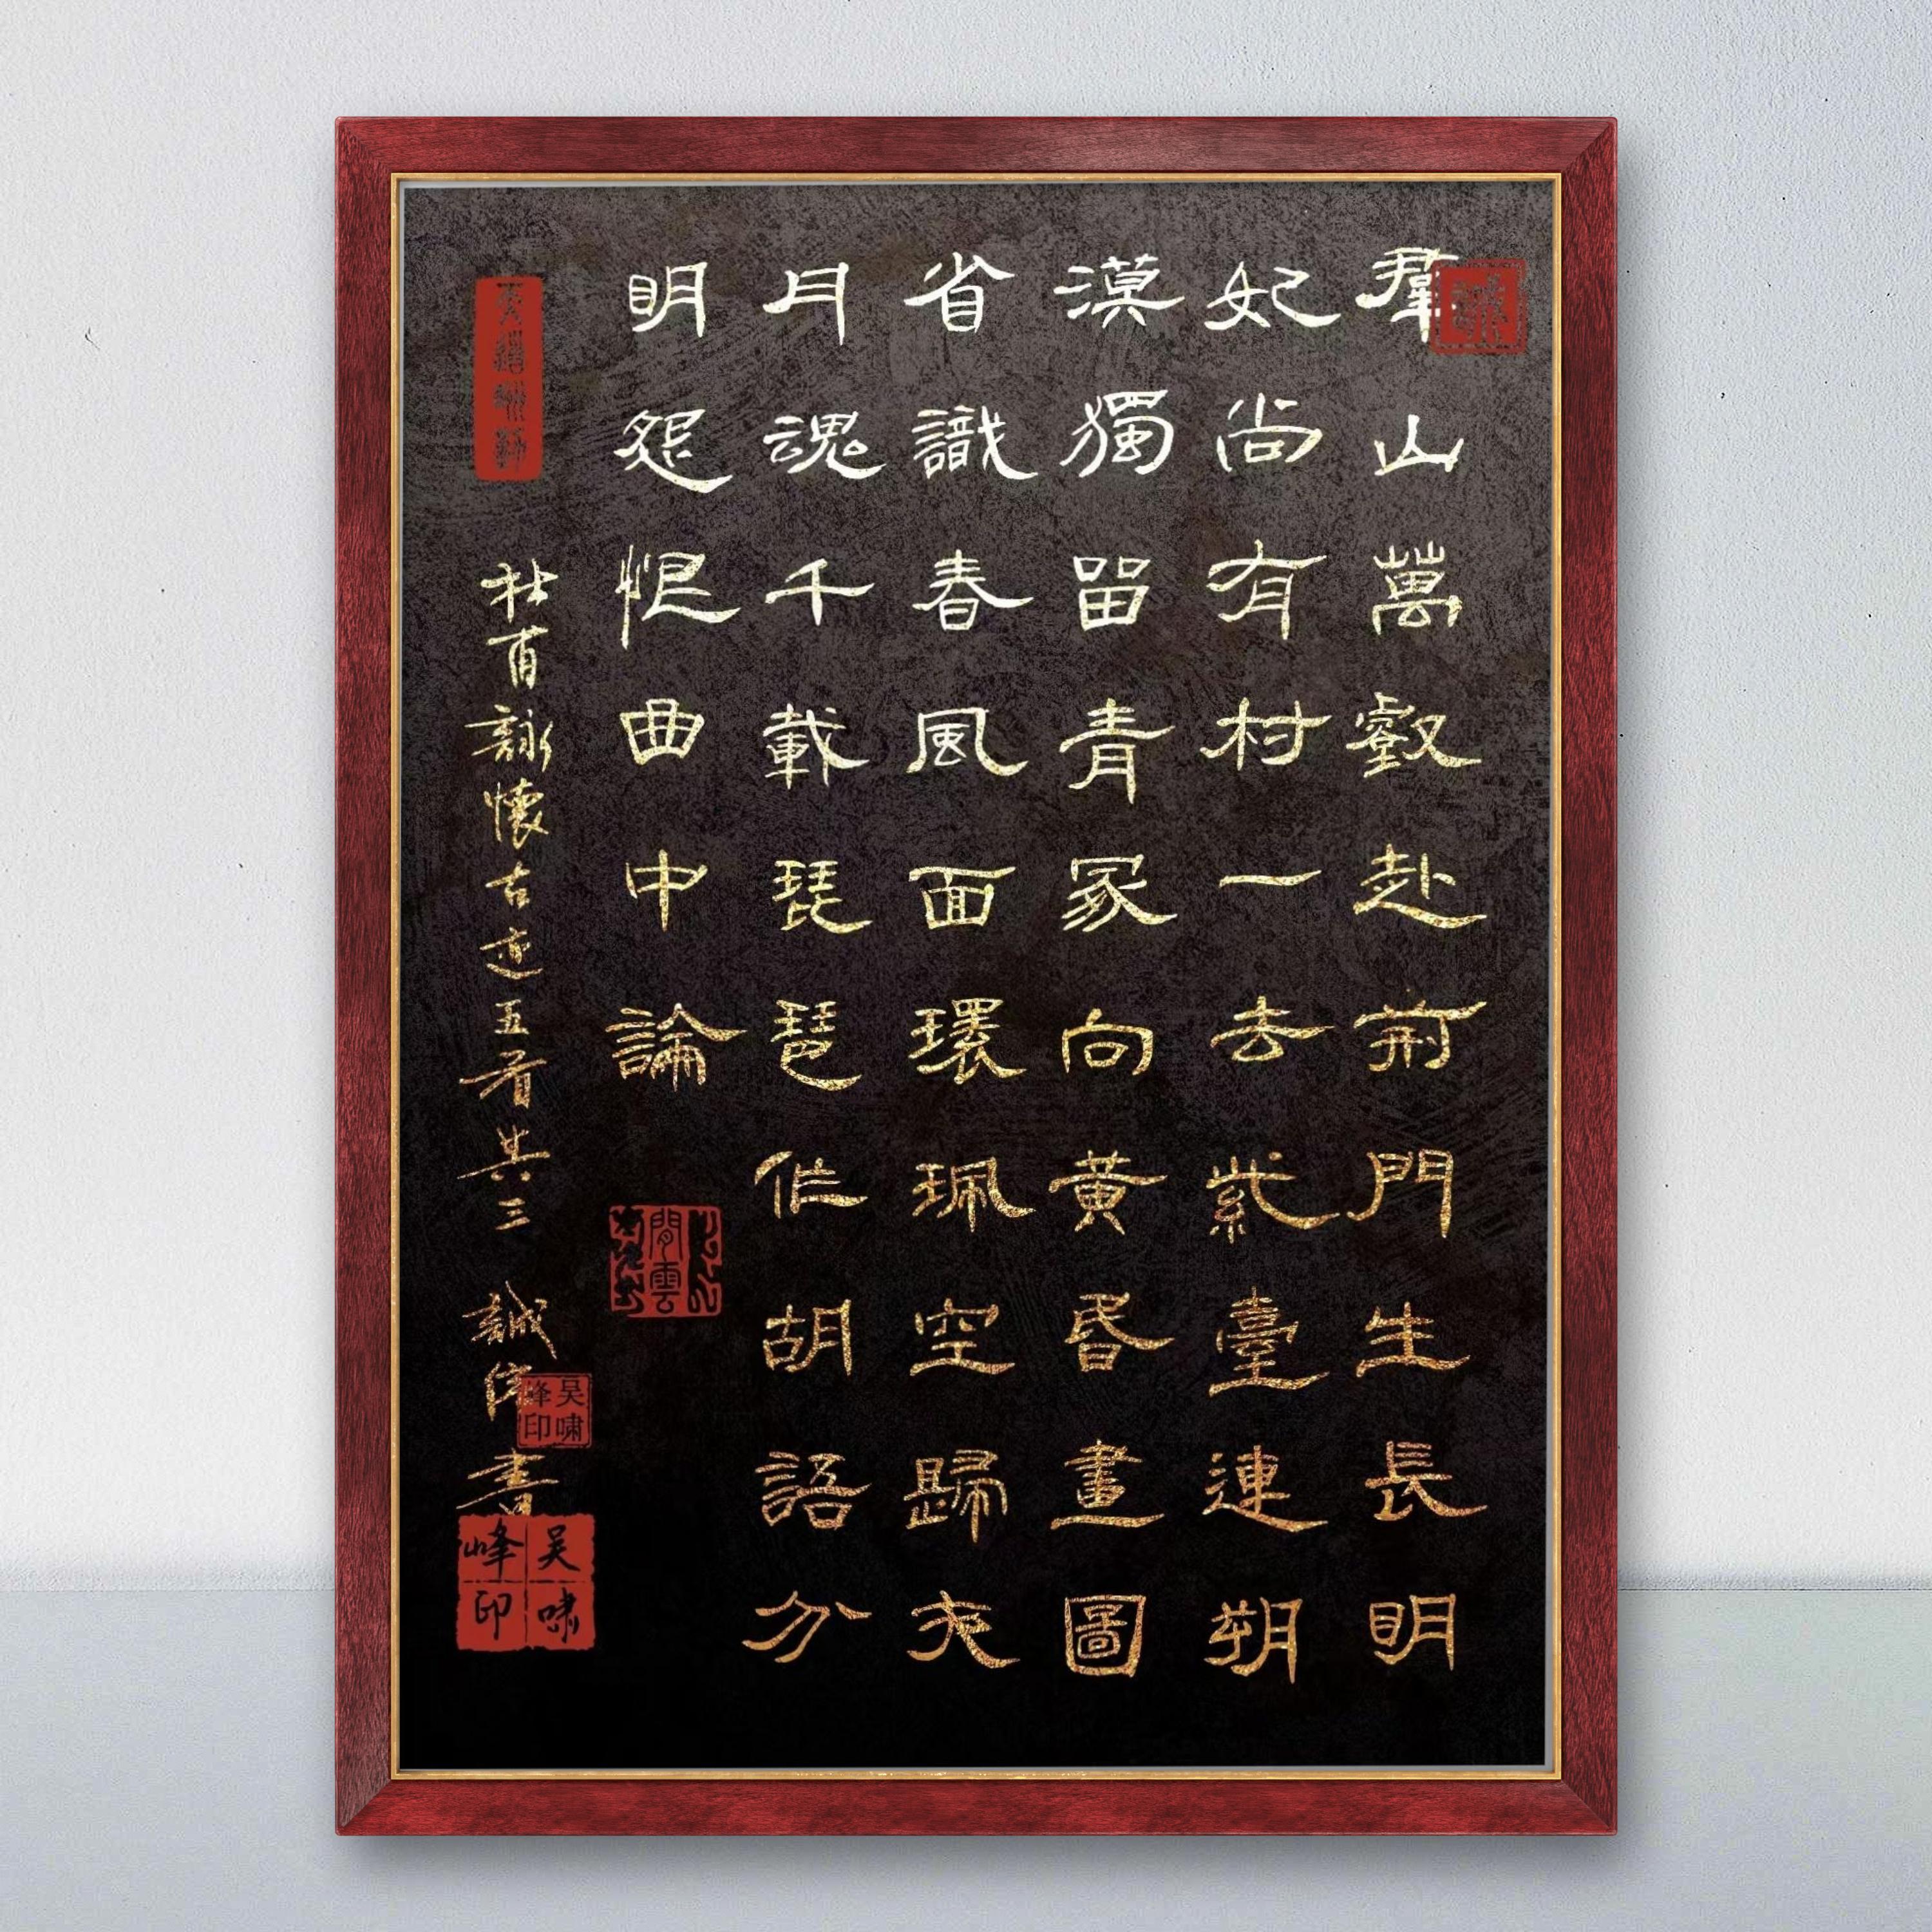 羣山萬壑赴荊門生長明
妃尚有村一去紫臺連朔
漠獨留青冢向黃昏畫圖
省識春風面環珮空歸夜
月魂千載琵琶作胡語分
明怨恨曲中論
閒雲
杜甫詠懷古迹五首其三
誠書
吴嘯峰印
吴嘯峰印